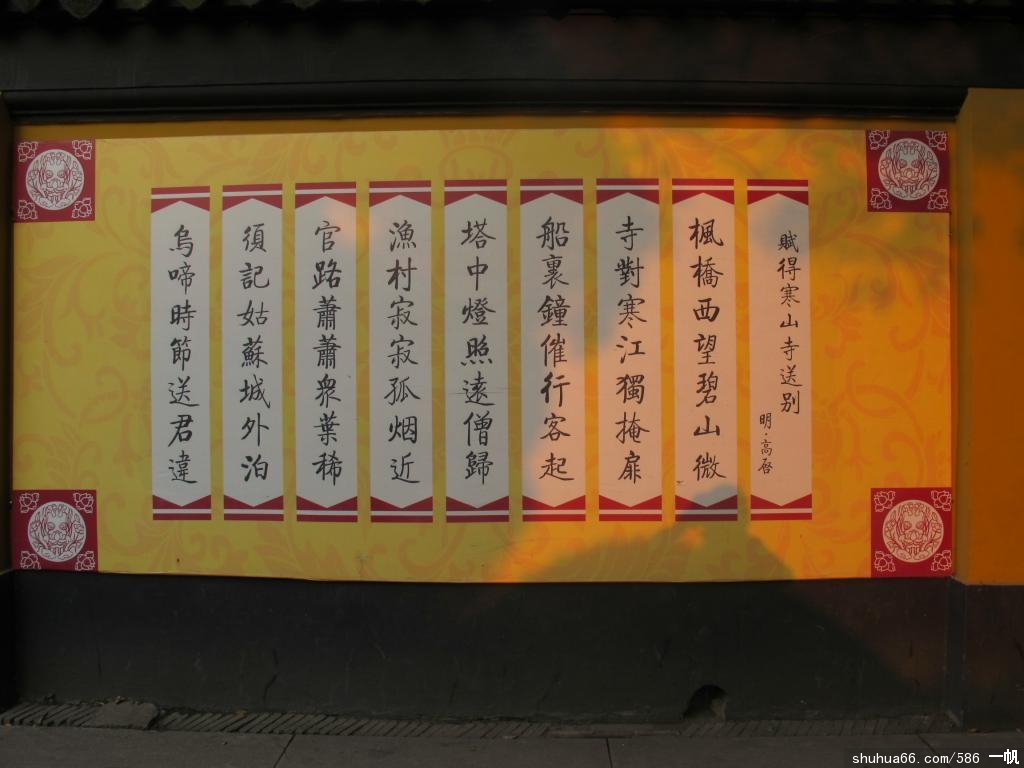 賦得寒山寺送别
明·高啓
楓橋西望碧山微
寺對寒江獨掩扉
船裏鐘催行客起
塔中燈照遠僧歸
漁村寂寂孤烟近
官路蕭蕭衆葉稀
須記姑蘇城外泊
烏啼時節送君違
shuhua66.com/586 一帆